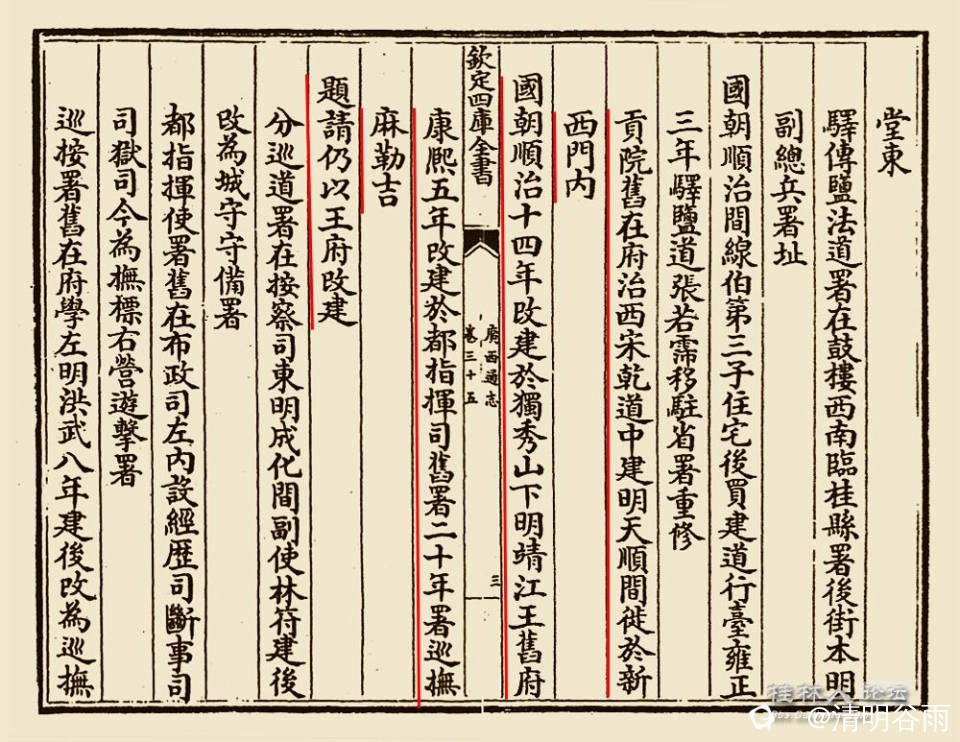 堂東
驛傳鹽法道署在鼓樓西南臨桂縣署後街本明
副總兵署址
國朝順治間線伯第三子住宅後買建道行臺雍正
三年驛鹽道張若霈移駐省署重修
貢院舊在府治西宋乾道中建明天順間徙於新
西門内
國朝順治十四年改建於獨秀山下明靖江王舊府
欽定四庫全書
廣西通志
卷三十五
三
康熙五年改建於都指揮司舊署二十年署巡撫
麻勒吉
題請仍以王府改建
分巡道署在按察司東明成化間副使林符建後
改為城守守備署
都指揮使署舊在布政司左内設經歷司斷事司
司獄司今為撫標右營遊擊署
巡按署舊在府學左明洪武八年建後改為巡撫
桂林人论坛
@清明谷雨